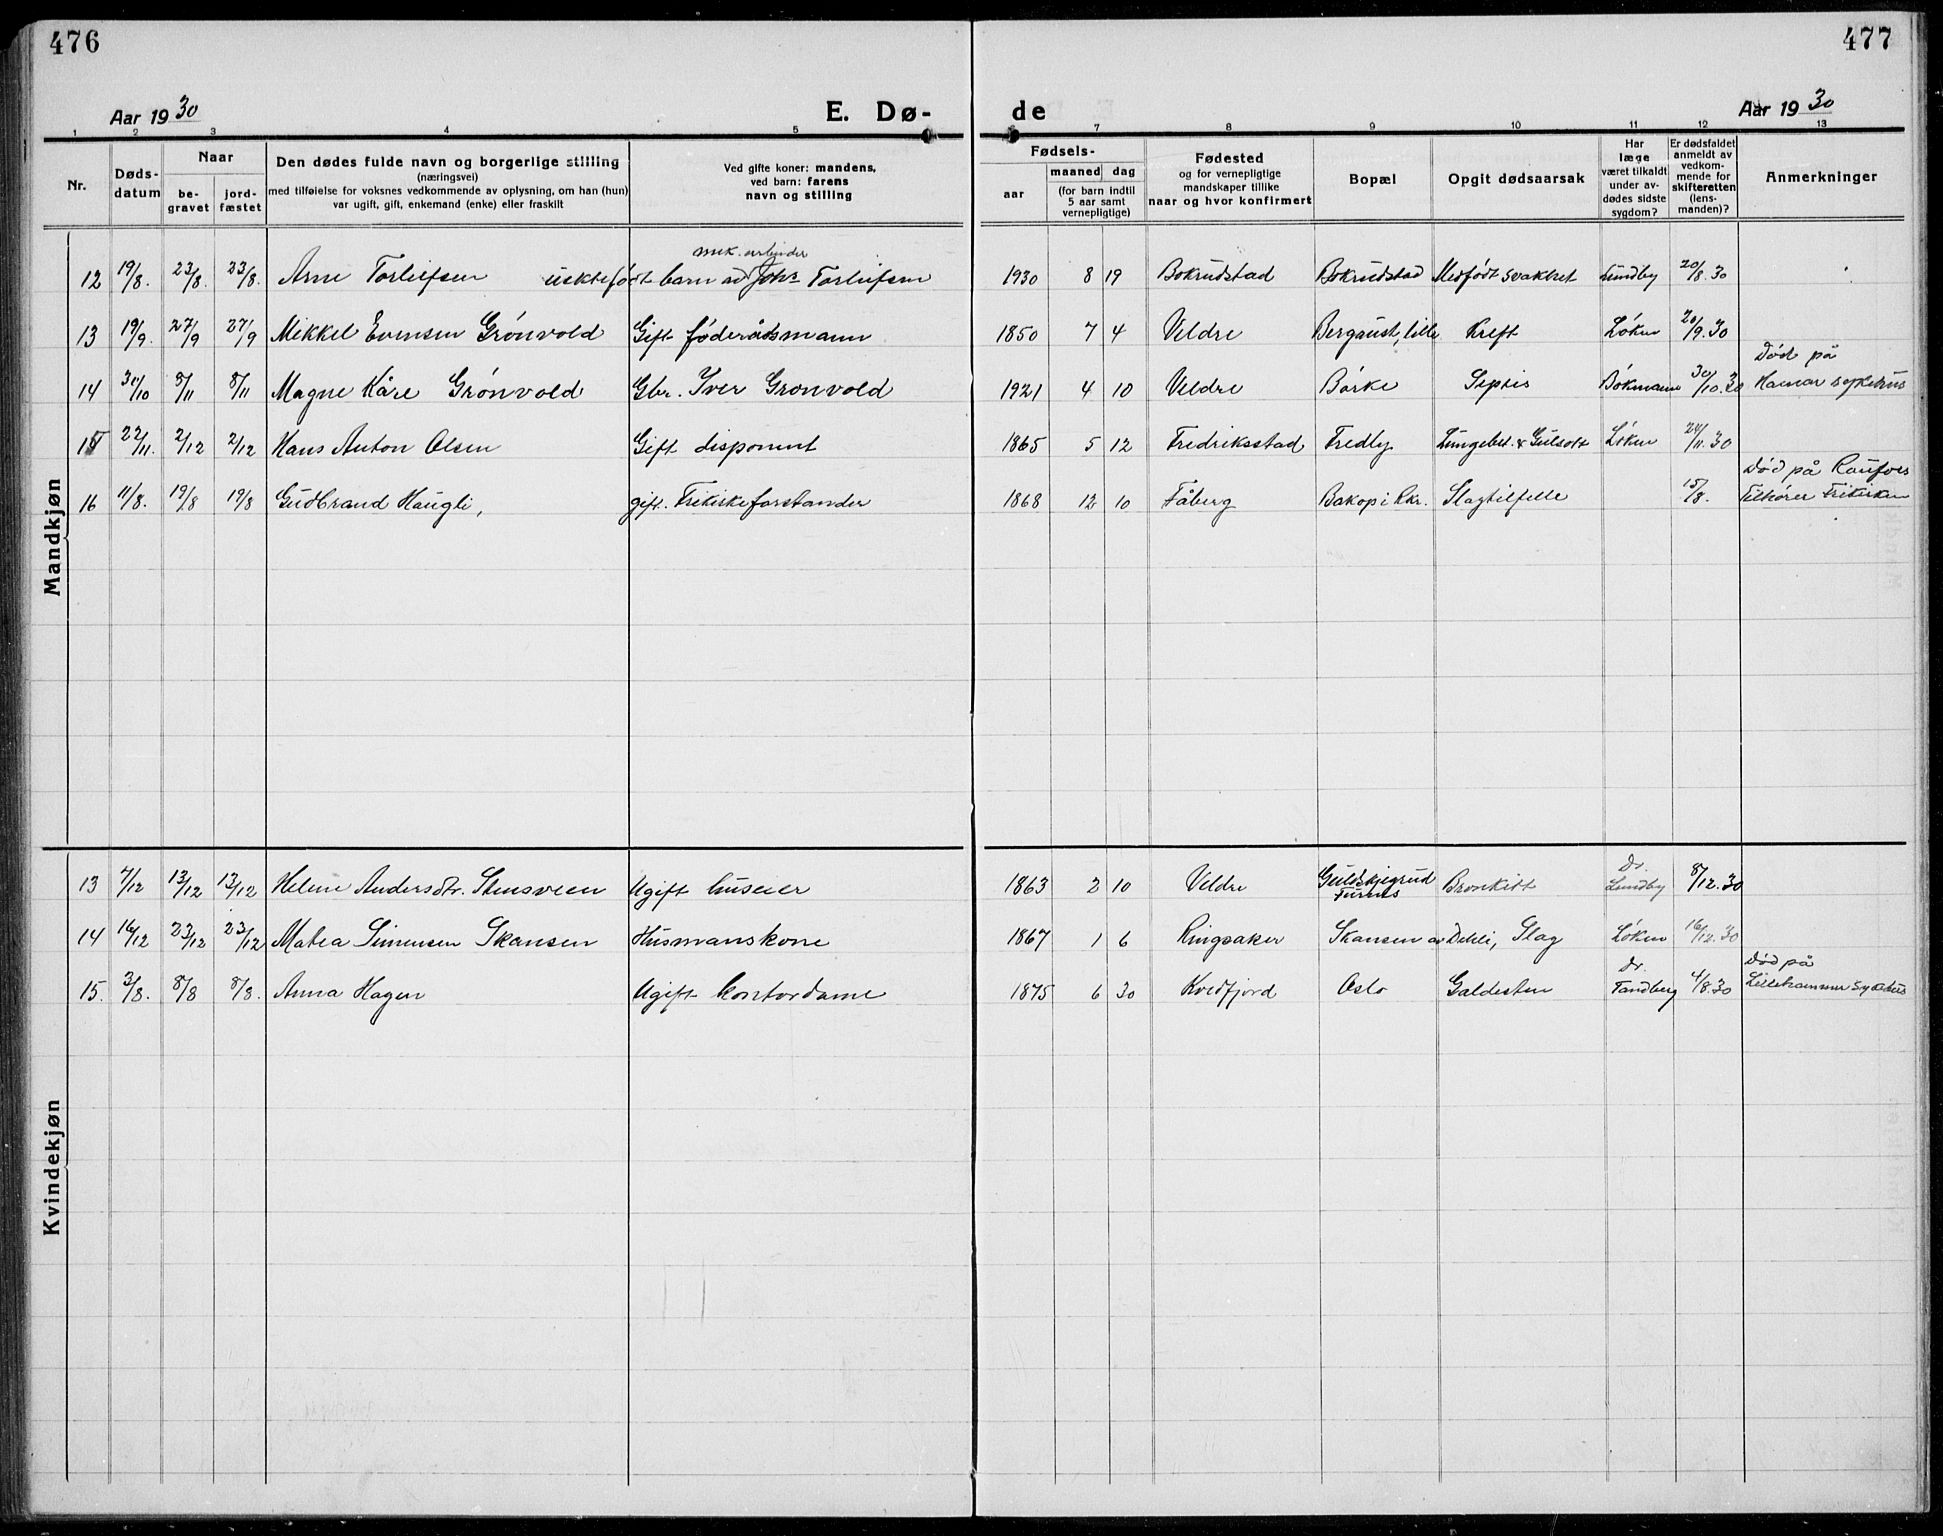 476
477
Aar 1930
E. Dø-
de
Aar 1930
1 2 3 4 5 6 7 8 9 10 11 12 13
Nr.
Dødsdatum
Naar
begravet
jordfæstet
Den dødes fulde navn og borgerlige stilling
(næringsvei)
med tilføielse for voksnes vedkommende av oplysning, om han (hun)
var ugift, gift, enkemand (enke) eller fraskilt
Ved gifte koner: mandens,
ved barn: farens
navn og stilling
Fødsels-
aar
maaned
dag
(for barn indtil
5 aar samt
vernepligtige)
Fødested
og for vernepligtige
mandskaper tillike
naar og hvor konfirmert
Bopæl
Opgit dødsaarsak
Har
læge
været tilkaldt
under av-
dødes sidste
sygdom?
Er dødsfaldet
anmeldt av
vedkom-
mende for
skifteretten
(lens-
manden)?
Anmerkninger
Mandkjøn
mek. arbeider
12 19/8. 23/8. 23/8. Arne Torleifsen uekte født barn av Johs Torleifsen 1930 8 19 Bokrudstad Bokrudstad Medfødt svakhet Lundby 20/8.30
13 19/9. 27/9 27/9 Mikkel Evensen Grönvold Gift føderådsmann 1850 7 4 Veldre Bergsust, lille Kreft Løken 20/9.30
Död på
14 30/10 8/11 8/11 Magne Kåre Grönvold Gbr. Iver Gronvold 1921 4 10 Veldre Börke Sepsis Bökmann 30/10.30 Hamar sykehus
15 22/11. 2/12 2/12 Hans Anton Olsen Gift disponent 1865 5 12 Fredriksstad Fredly Lungebet. & Gulsott Løken 24/11.30
Död på Raufoss
16 11/8. 19/8 19/8 Gudbrand Haugli, gift. Frikirkeforstander 1868 12 10 Fåberg Bakop i Rkr. Slagtilfelle 15/8. Tilhører Frikirken
Kvindekjøn
13 7/12 13/12 13/12 Helene Andersdtr. Stensveen Ugift huseier 1863 2 10 Veldre Guldskjegrud Furnes Bronkitt Dr. Lundby 8/12.30
14 16/12 23/12 23/12 Matea Simensen Skansen Husmanskone 1867 1 6 Ringsaker Skansen av Dehli, Slag Løken 16/12.30
Död på
15. 3/8. 8/8 8/8. Anna Hagen Ugift kontordame 1875 6 30 Kvedfjord Oslo Galdesten Dr. Tandberg 4/8.30 Lillehammer sykehus